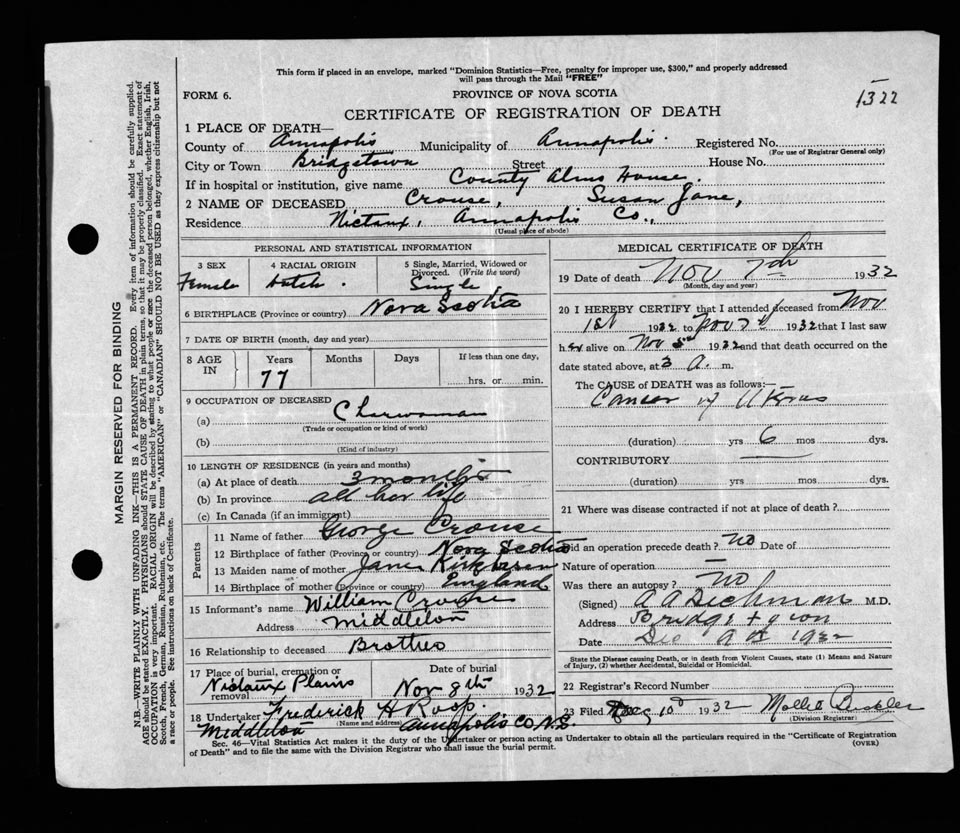 This form if placed in an envelope, marked "Dominion Statistics—Free, penalty for improper use, $300," and properly addressed
will pass through the Mail "FREE"
FORM 6.
PROVINCE OF NOVA SCOTIA
1322
CERTIFICATE OF REGISTRATION OF DEATH
1 PLACE OF DEATH—
County of Annapolis Municipality of Annapolis Registered No.
(For use of Registrar General only)
City or Town Bridgetown Street House No.
If in hospital or institution, give name County Alms House.
2 NAME OF DECEASED Crouse, Susan Jane,
Residence Nictaux, Annapolis Co.,
(Usual place of abode)
PERSONAL AND STATISTICAL INFORMATION
3 SEX 4 RACIAL ORIGIN 5 Single, Married, Widowed or
Divorced. (Write the word)
Female Dutch. Single
6 BIRTHPLACE (Province or country) Nova Scotia
7 DATE OF BIRTH (month, day and year)
8 AGE IN Years Months Days If less than one day,
77 hrs. or min.
9 OCCUPATION OF DECEASED
(a) Charwoman
(Trade or occupation or kind of work)
(b)
(Kind of industry)
10 LENGTH OF RESIDENCE (in years and months)
(a) At place of death 3 months
(b) In province all her life
(c) In Canada (if an immigrant)
Parents
11 Name of father George Crouse
12 Birthplace of father (Province or country) Nova Scotia
13 Maiden name of mother Jane
14 Birthplace of mother (Province or country) England
15 Informant's name William Crouse
Address Middleton
16 Relationship to deceased Brother
17 Place of burial, cremation or removal Date of burial
Nictaux Plains Nov 8th 1932
18 Undertaker Frederick H Roop.
(Name and address)
Middleton Annapolis Co N.S.
MEDICAL CERTIFICATE OF DEATH
19 Date of death Nov 7th 1932
(Month, day and year)
20 I HEREBY CERTIFY that I attended deceased from Nov
1st 1932 to Nov 7th 1932 that I last saw
her alive on Nov 5th 1932 and that death occurred on the
date stated above, at 3 a. m.
The CAUSE of DEATH was as follows:—
Cancer of Uterus
(duration) yrs 6 mos dys.
CONTRIBUTORY
(duration) yrs. mos. dys.
21 Where was disease contracted if not at place of death?
Did an operation precede death? No Date of
Nature of operation —
Was there an autopsy? No
(Signed) A A Dechman M.D.
Address Bridgetown
Date Dec 9th 1932
State the Disease causing Death, or in death from Violent Causes, state (1) Means and Nature
of Injury, (2) whether Accidental, Suicidal or Homicidal.
22 Registrar's Record Number
23 Filed Dec 10th 1932
(Division Registrar)
Sec. 46—Vital Statistics Act makes it the duty of the Undertaker or person acting as Undertaker to obtain all the particulars required in the "Certificate of Registration
of Death" and to file the same with the Division Registrar who shall issue the burial permit.
(OVER)
MARGIN RESERVED FOR BINDING
N.B.—WRITE PLAINLY WITH UNFADING INK—THIS IS A PERMANENT RECORD. Every item of information should be carefully supplied.
AGE should be stated EXACTLY. PHYSICIANS should STATE CAUSE OF DEATH in plain terms so that it may be properly classified. Exact statement of
OCCUPATION is very important. RACIAL ORIGIN will be described by stating to what people or race the deceased person belonged, whether English, Irish,
Scotch, French, German, Russian, Ruthenian, etc. The terms "AMERICAN" or "CANADIAN" SHOULD NOT BE USED as they express citizenship but not
a race or people. See instructions on back of Certificate.